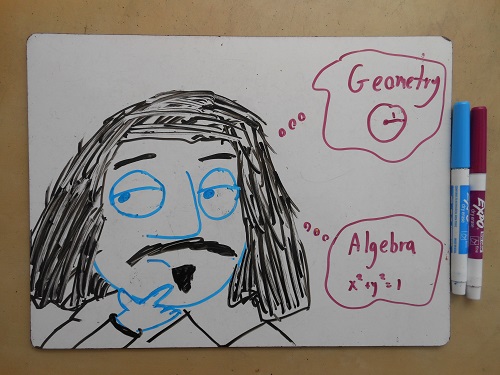 Geometry
1
Algebra
x²+y²=1
EXPO